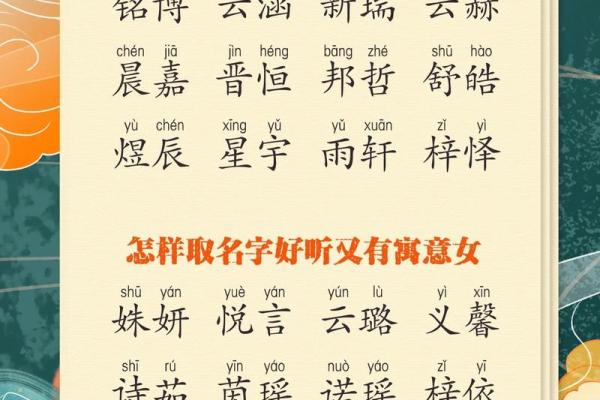 铭博 云涵 新瑞 云赫
chén jiā jìn héng bāng zhé shū hào
晨嘉 晋恒 邦哲 舒皓
yù chén xīng yǔ yǔ xuān zǐ yì
煜辰 星宇 雨轩 梓怿
怎样取名字好听又有寓意女
shū yán yuè yán yún lù yì xīn
姝妍 悦言 云璐 义馨
shī rú yīn yáo nuò yáo zǐ yī
诗茹 茵瑶 诺瑶 梓依